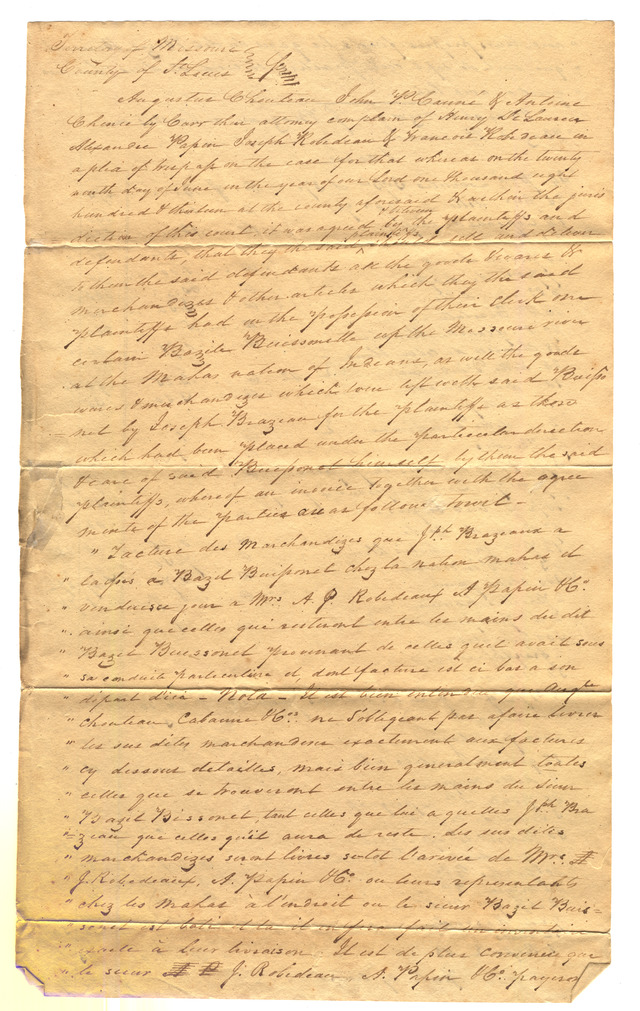 Territory of Missouri
County of St. Louis
Augustus Chouteau John P. Cabané & Antoine
Chenie by Carr their attorney complain of Henry
Alexander Papin Joseph Robedeau & Francois Robedeau in
a plea of trespass on the case for that whereas on the twenty
ninth day of June in the year of our Lord one thousand eight
hundred & thirteen at the county aforesaid & within the juris
diction of this court, it was agreed by the plaintiffs and
& between
defendants, that they the said plaintiffs, sell and deliver
to them the said defendants all the goods & wares &
merchandizes & other articles which they the said
plaintiffs had in the possession of their clerk one
certain Bazile Buissonette up the Missouri river
at the Mahas nation of Indians, as well the goods
wares & merchandizes which were left with said Buisso
net by Joseph Brazeau for the plaintiffs as those
which had been placed under the particular direction
& care of said Buissonet himself by them the said
plaintiffs, whereof an invoice together with the agree
ments of the parties are as follows towit -
" Facture des Marchandizes que Jph. Brazeaux a
" laissés à Bazil Buissonet chez la nation mahas et
" vendues ce jour a Mrs A P. Robedeaux A Papin & Co.
" ainsi que celles qui resteront entre les mains du dit
" Bazil Buissonet provenant de celles quil avait sous
" sa conduite particuliere et, dont facture est ci bas a son
" départ d'ici - Nota - Il est bien entendu que Augte
" Chouteau, Cabanne & Co. ne s'obligeant pas a faire livrer
" les sus dites marchandises exactement aux factures
" cy dessous detailles, mais bien generalement toutes
" celles que se trouveront entre les mains du Sieur
" Bazil Bissonet, tant celles que lui a Jph. Bra
" =zeau que celles qu'il aura de reste. Les sus dites
" marchandizes seront livres sitot l'arrivée de Mrs.
" J. Robedeaux, A. Papin & Co. ou leurs representants
" chez les Mahas a l'endroit ou le sieur Bazil Buis=
" sonet est bati et la il en sera fait un inventaire
" exacte à leur livraison. Il est de plus convenue que
" le sieur J. Robedeau, A. Papin & Co. payeron